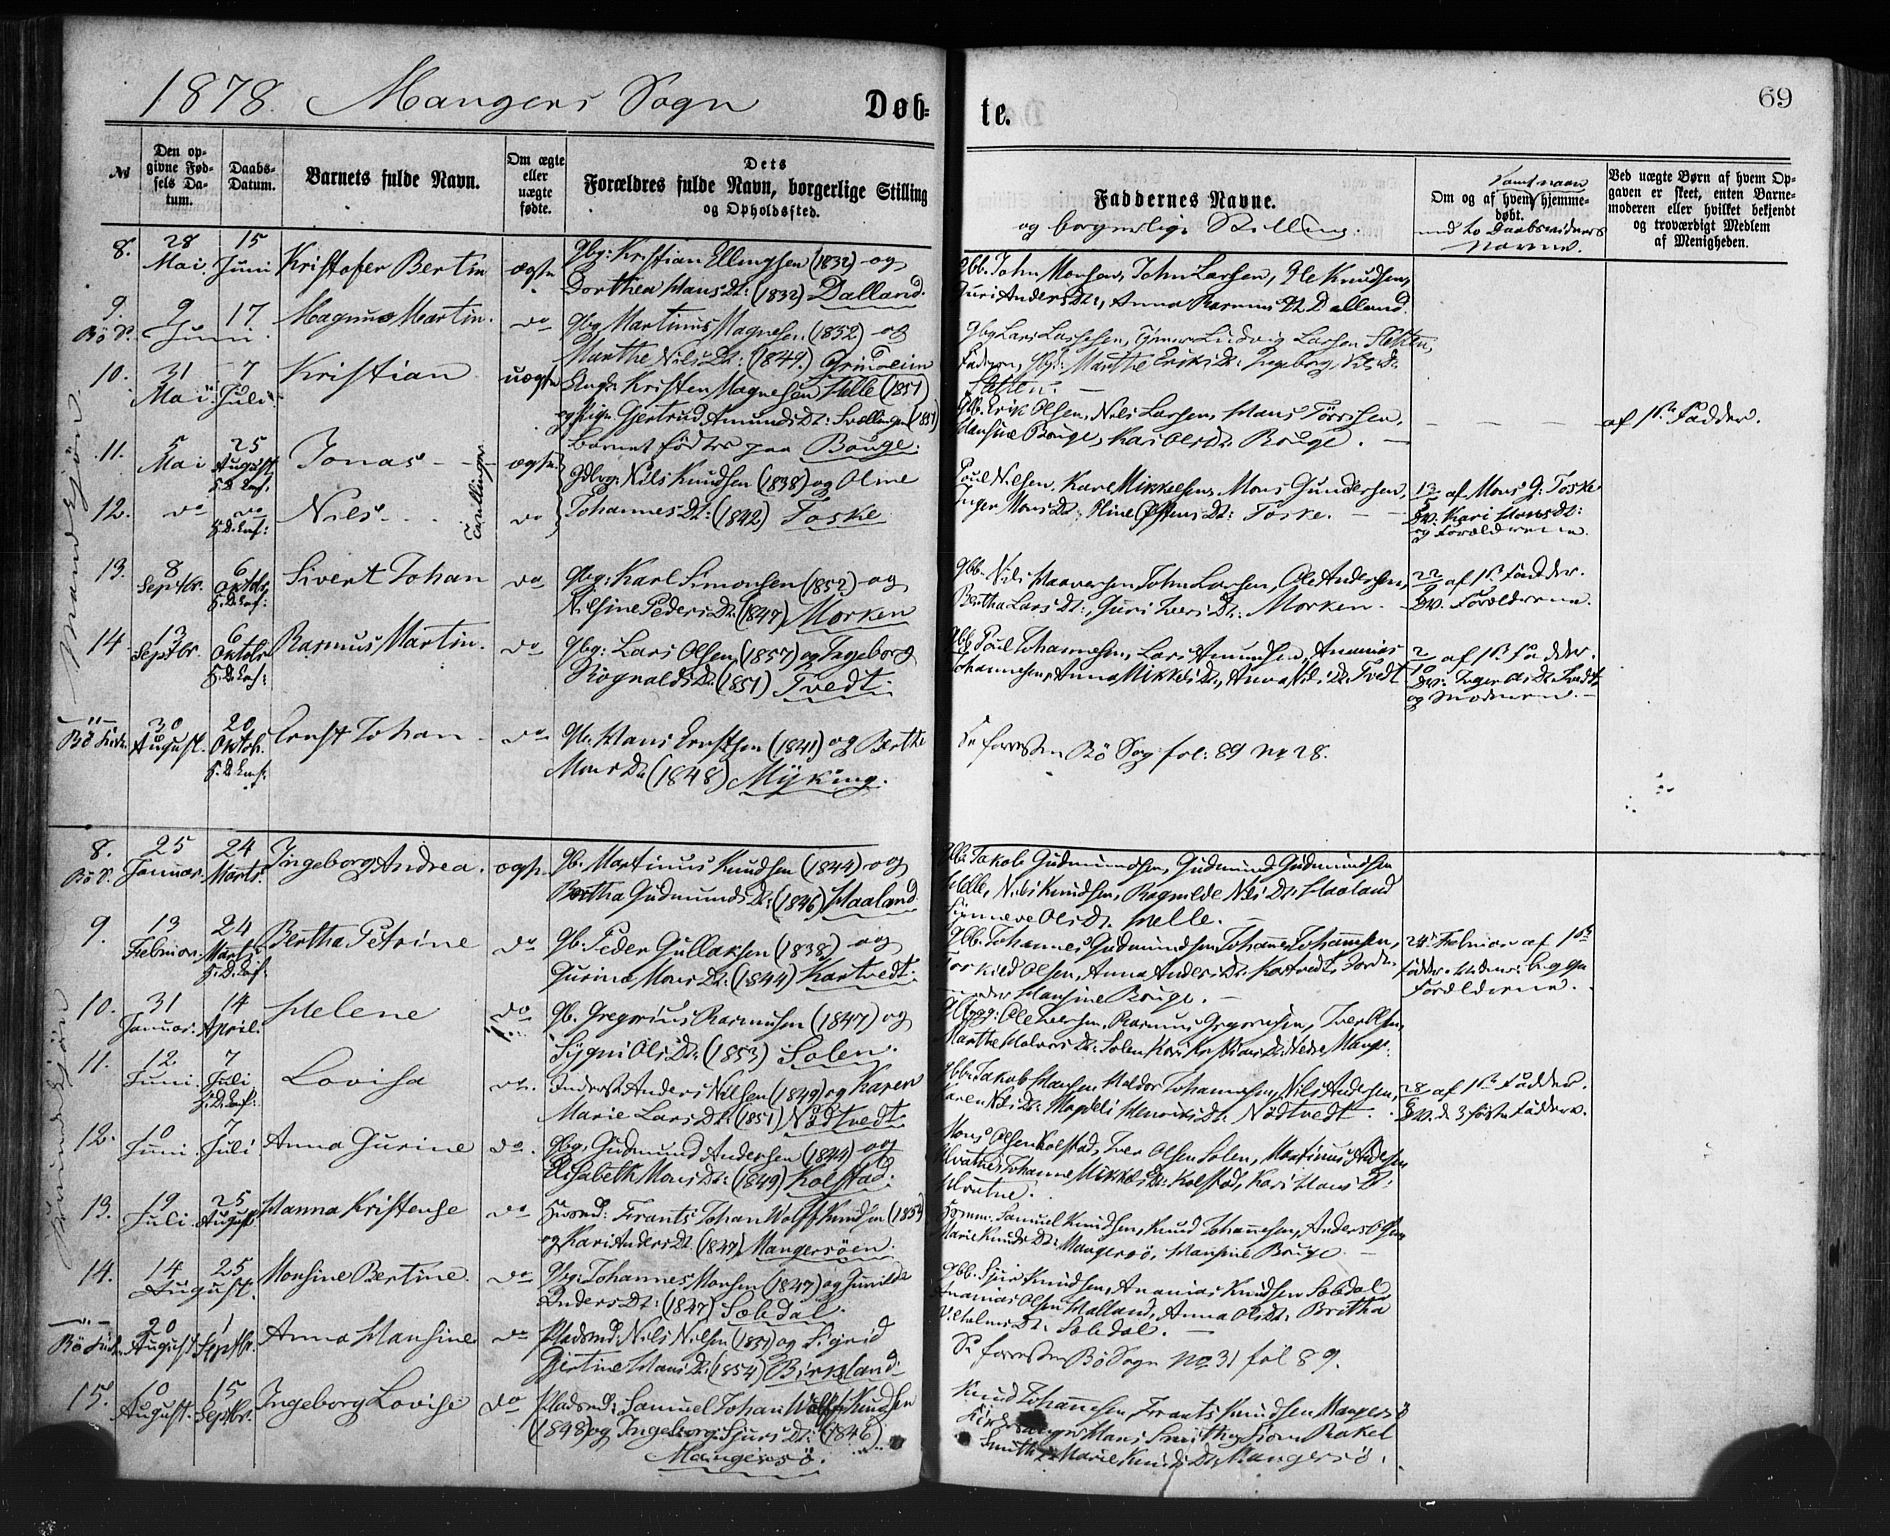 1878. Mangers Sogn
Døb-
te.
69
№
Den opgivne Fødsels Datum.
Daabs-Datum.
Barnets fulde Navn.
Om ægte eller uægte fødte.
Dets Forældres fulde Navn, borgerlige Stilling og Opholdssted.
Faddernes Navne.
og borgerlige Stilling.
Om og af hvem hjemmedøbt.
samt naar
med to Daabsvidners Navne.
Ved uægte Børn af hvem Opgaven er skeet, enten Barnemoderen eller hvilket bekjendt og troværdigt Medlem af Menigheden.
Mandkjøn
8. 28 Mai 15 Juni Kristofer Bertin ægte
Gbg: Kristian Ellingsen (1832) og
Dorthea HansDt: (1832) Dalland.
Gbb. John Monsen, John Larsen, Ole Knudsen,
Guri AndersDt:, Anna RasmusDt Dalland.
9. 9 Juni 17 Magnus Martin. do
Gbg Martinus Magnesen (1832) og
Marthe NilsDt: (1849.) Grimseim
Gbg Lars Larsesen, Ludvig Larsen Sletten,
Marthe EriksDt: Ingeborg NilsDt:
Sletten.
10. 31 Mai 7 Juli. Kristian uægte
Ungk: Kristen Magnesen Helle (1851)
og Pige Gjertrud AmundsDt: (1851)
Barnet fødtes paa Bouge.
Gbb. Erik Olsen, Nils Larsen, Hans
Hansine Bouge, Kari OlsDt Bouge.
af 1ste Fadder.
11. 5 Mai 25 August Jonas ægte
Gbg: Nils Knudsen (1838) og Oline
12. do do Nils do
JohannesDt: (1842) Toske
Tvillinger
Poul Nilsen, Karl Mikkelsen, Mons Gundersen,
Inger MonsDt: Oline Toske.
13/5 af Mons G. Toske
DV: Kari HansDt:
og Forældrene.
13. 8 Septbr. 6 Oktobr. Sivert Johan do
Gbg: Karl Simonsen (1852) og
Nilsine PedersDt: (1847) Morken
Gbb. Nils Haaversen, John Larsen, Ole Andersen,
Bertha LarsDt:, Guri IversDt: Morken.
22/9 af 1ste Fadder.
DV. Forældrene.
14. 13 Septbr. 6 Oktobr Rasmus Martin. do
Gbg: Lars Olsen (1857) og Ingeborg
RognaldsDt: (1851) Tvedt.
Gbb Poul Johannesen, Lars Amundsen, Ananias
Johannesen, Anna MikkelsDt:, Anna NilsDt: Tvedt
2/10 af 1ste Fadder.
DV. Inger OlsDt. Tvedt
og Moderen.
30 August. 20 Oktob. Ernst Johan do
Gb. Hans Ernstsen (1841) og Berthe
MonsDt: (1848) Myking.
Se forresten Bö Sogn fol: 89 No 28.
Kvindekjøn
8. 25 Januar. 24 Marts. Ingeborg Andrea. ægte.
Gb. Martinus Knudsen (1844) og
Bertha GudmundsDt: (1846) Haaland
Gbb. Jakob Gudmundsen, Gudmund Gudmundsen
Helle, Nils Knudsen, Ragnilde NilsDt: Haaland
Synneve OlsDt. Helle.
9. 13 Februar. 24 Marts. Bertha Petrine do
Gb. Peder Gullaksen (1838) og
Gurine MonsDt: (1844) Kartvedt.
Gbb. Johannes Gudmundsen, Johannes Johannesen,
Torkild Olsen, Anna AndersDt: Kartvedt, Jorde-
moder Hansine Bouge.
24 Februar af 1ste
Fadder. Vidner: begge
Forældrene.
10. 31 Januar. 14 April. Helene do
Gb. Gregorius Rasmusen (1847) og
Sygni OlsDt: (1853) Solen.
Gbg: Ole Iversen, Rasmus Gregoriusen, Iver Olsen,
Marthe HalvorsDt: Solen, Kari KristiansDt: Nedre Mange.
11. 12 Juni 7 Juli Lovisa do.
Inderst Anders Nilsen (1849) og Karen
Marie LarsDt: (1851) Nödtvedt.
Gbb. Jakob Hansen, Haldor Johannesen, Nils Andersen,
Karen NilsDt: Magdeli HenriksDt: Nödtvedt.
28/6 af 1ste Fadder.
DV. de 3 første Faddere.
12. 10 Juni 7 Juli Anna Gurine do.
Gbg: Gudmund Andersen (1844) og
Elisabeth MonsDt: (1849) Kolstad.
Mons Olsen Kolstad, Iver Olsen Solen, Martinus Andersen
Johanne MikkelsDt: Kolstad, Kari HansDt:
13. 19 Juli 25 August Hanna Kristense do
Husmd: Frants Johan Wolff Knudsen (1853)
og Kari AndersDt. (1847) Mangersøen.
Samuel Knudsen, Knud Johannesen, Anders Olsen
Marie KnudsDt: Mangersö, Hansine Bouge.
14. 14 25 August. Monsine Bertine. do
Gbg: Johannes Monsen (1847) og Gunilde
AndersDt: (1847) Sæbdal.
Gbb. Sjur Knudsen, Ananias Knudsen Sæbdal
Ananias Olsen Halland, Anna OlsDt: Britha
VilhelmsDt: Sæbdal.
20 August 1 Septbr. Anna Hansine do
Pladsmd: Nils Nilsen (1851) og Sigrid
Gjertine HansDt: (1854) Birkeland.
Se forresten Bö Sogn No. 31 fol 89.
15. 10 August. 15 Septbr. Ingeborg Lovise do
Pladsmd: Samuel Johan Wolff Knudsen
(1848) og Ingeborg SjursDt: (1846)
Mangersö.
Knud Johannesen, Frants Knudsen Mangersö
Hans Smith, Rakel
Smith, Marie KnudsDt: Mangersö.